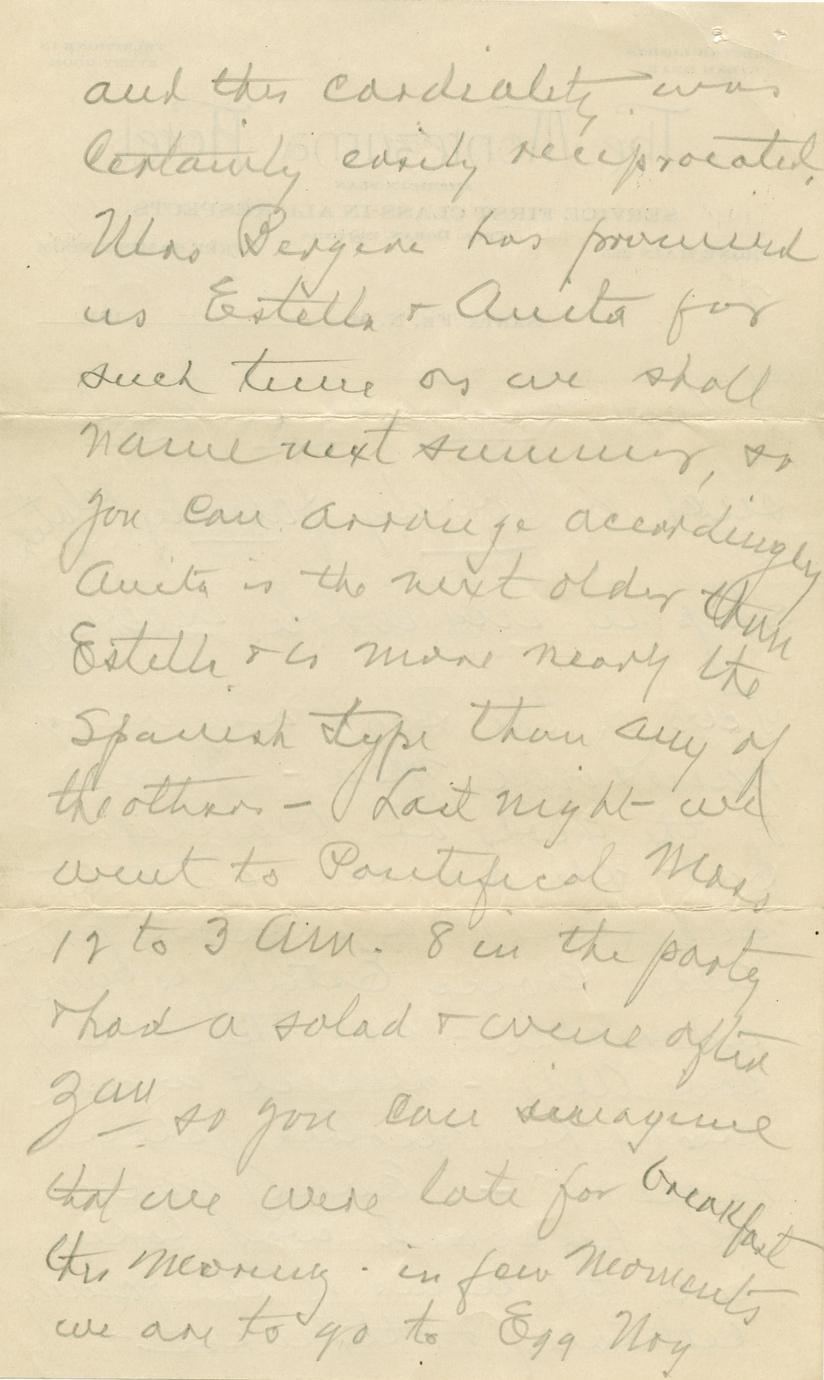 and this cordiality was
certainly easily reciprocated.
Mrs Bergere has promised
us Estella & Anita for
such time as we shall
name next summer, so
you can arrange accordingly
Anita is the next older than
Estella & is more nearly the
Spanish type than any of
the others – Last night we
went to Pontifical Mass
12 to 3 AM. 8 in the party
& had a salad & wine after
3 am – so you can imagine
that we were late for breakfast
this morning. in few moments
we are to go to Egg Nog